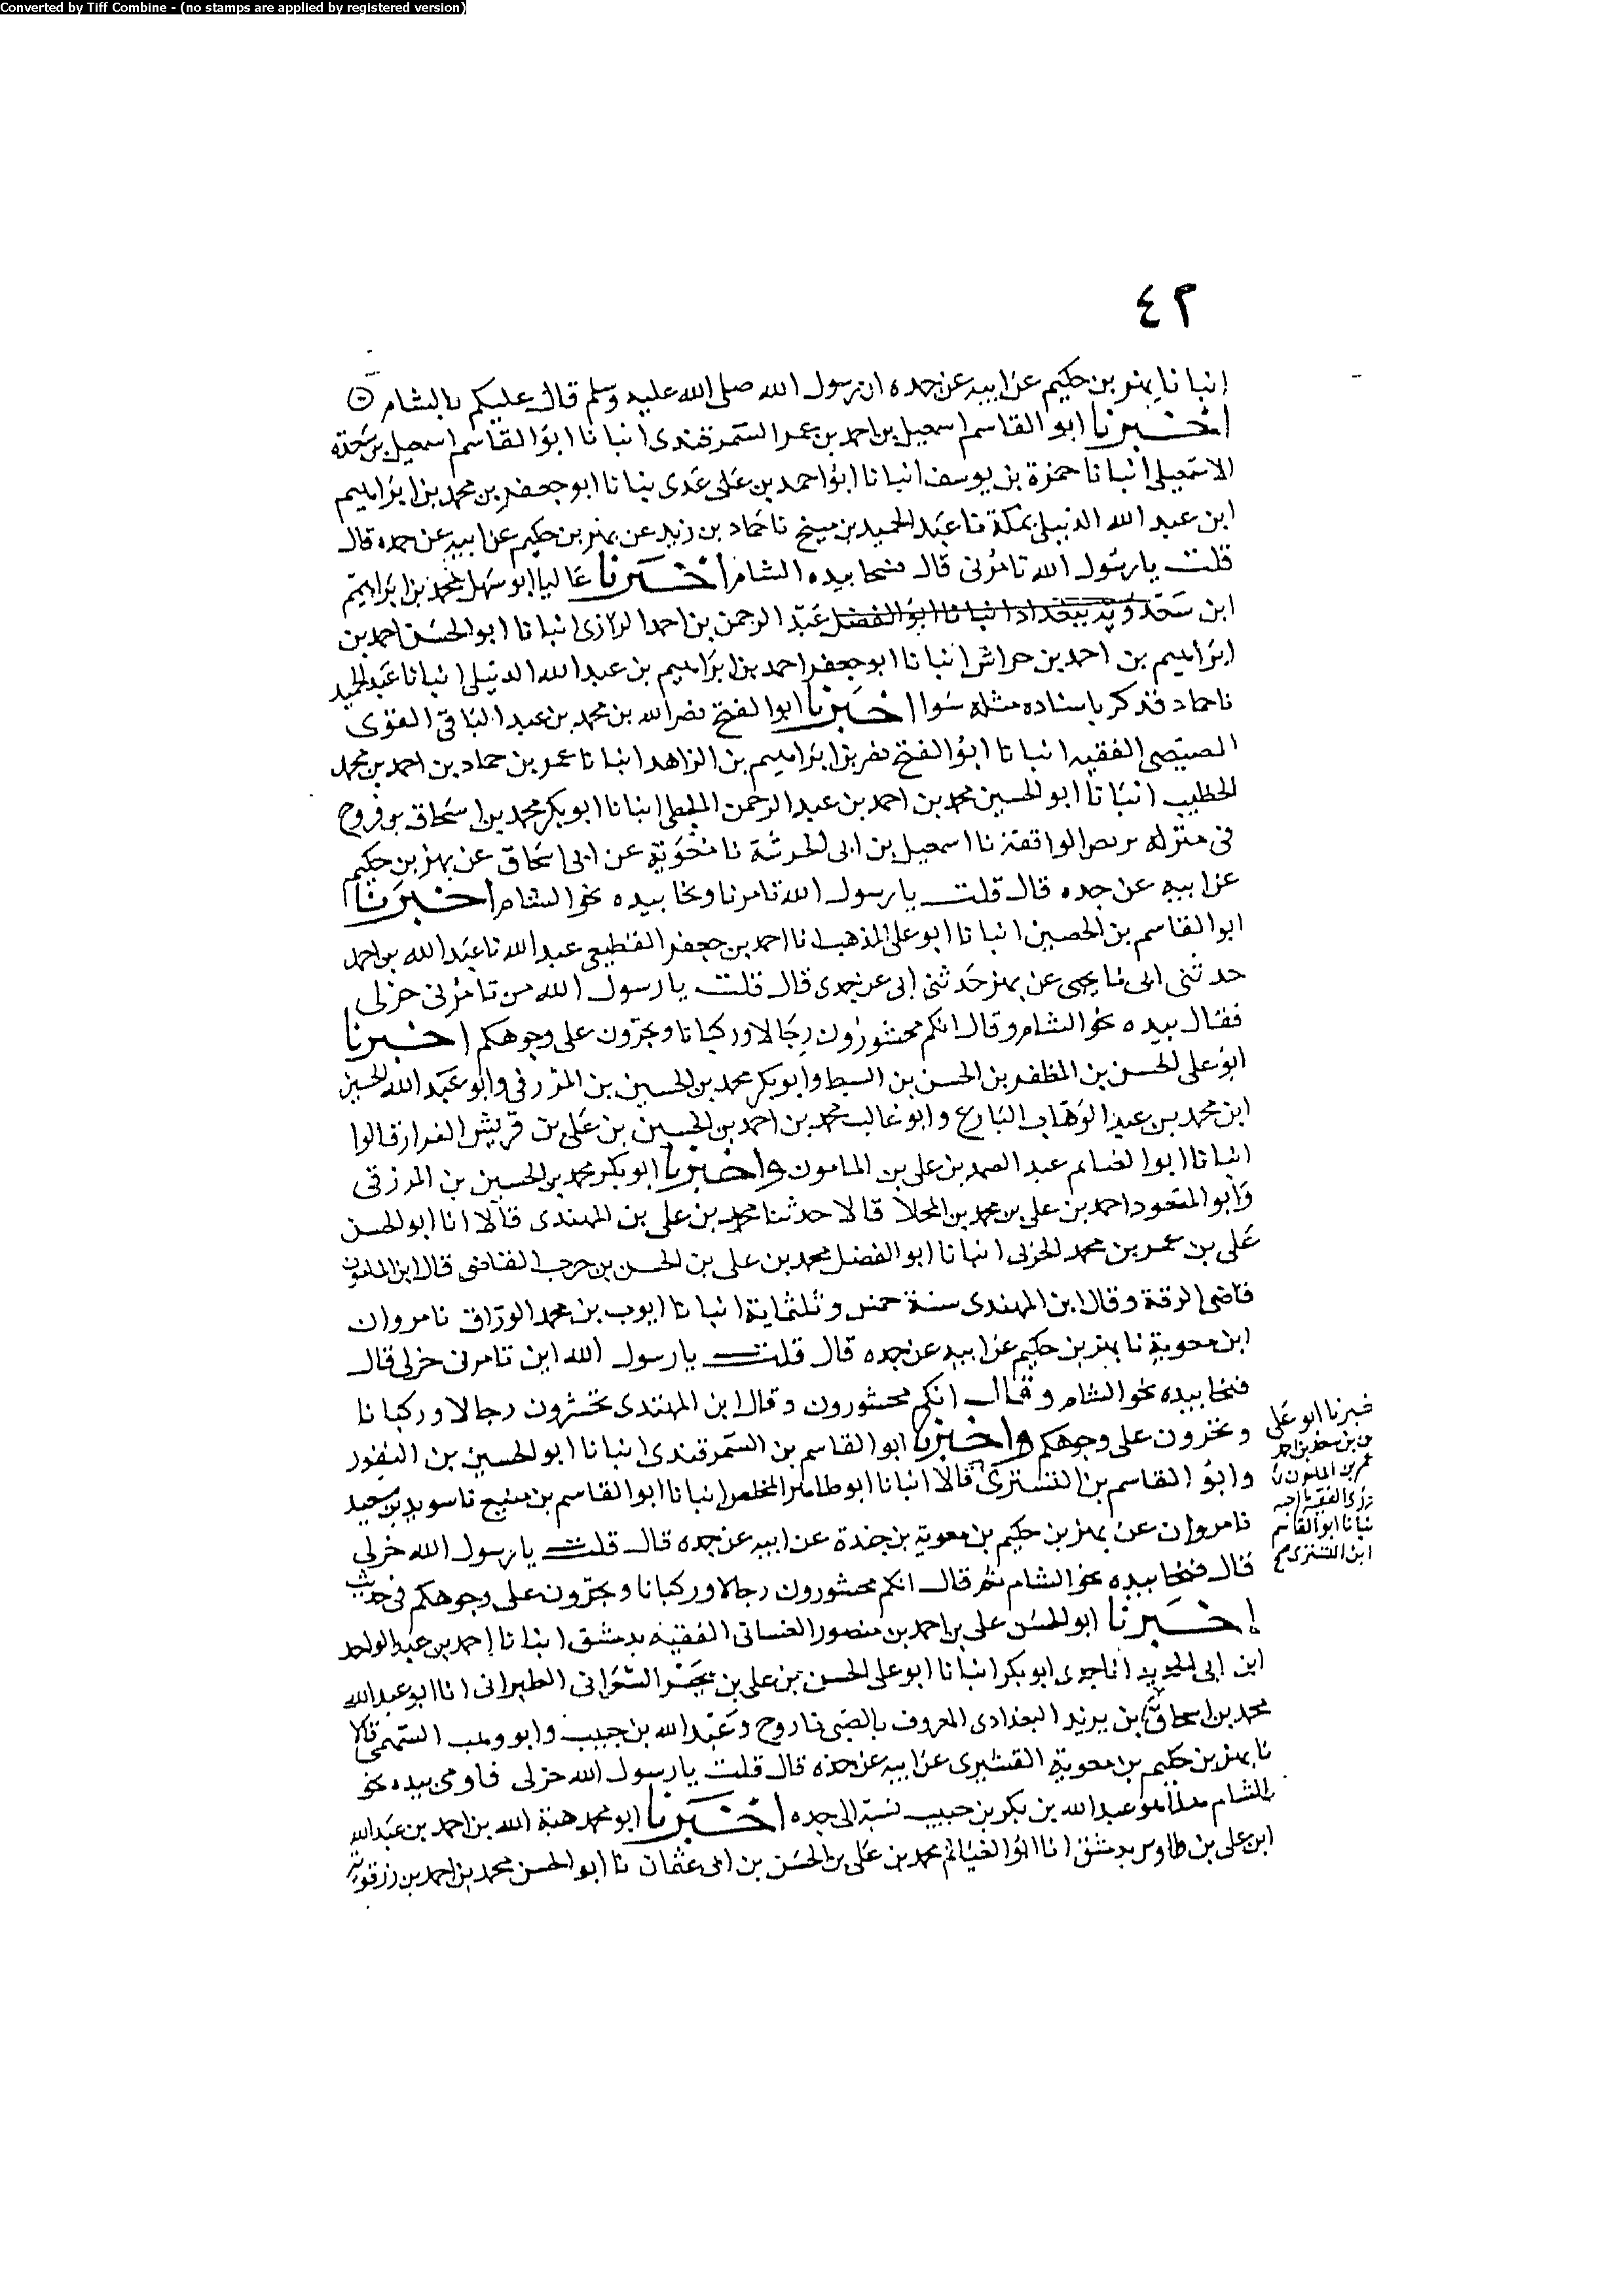 Converted by Tiff Combine - (no stamps are applied by registered version)
٤٢
انبانا بهز بن حكيم عن ابيه عن جده ان رسول الله صلى الله عليه وسلم قال عليكم بالشام
اخبرنا ابو القاسم اسمعيل بن احمد بن عمر السمرقندى انبانا ابو القاسم اسمعيل بن
انبانا حمزة بن يوسف انبانا ابو احمد بن على عدى نبانا ابو جعفر بن محمد بن ابراهيم
ابن عبد الله الدنبلى بمكة نا عبد الحميد بن صبيح نا حماد بن زيد عن بهز بن حكيم عن ابيه عن جده قال
قلت يا رسول الله تامرنى قال فنحا بيده الشام اخبرنا عاليا ابو سهل محمد بن ابراهيم
ابن ببغداد انبانا ابو الفضل عبد الرحمن بن احمد الرازى انبانا ابو الحسن احمد بن
ابراهيم بن احمد بن حراش انبانا ابو جعفر احمد بن ابراهيم بن عبد الله الدنبلى انبانا عبد الحميد
نا حماد فذكر باسناده مثله سوا اخبرنا ابو الفتح نصر الله بن محمد بن عبد الباقى
الفقيه انبانا ابو الفتح نصر بن ابراهيم بن الزاهد انبانا عمر بن حماد بن احمد بن محمد
الخطيب انبانا ابو الحسين محمد بن احمد بن عبد الرحمن الملطى انبانا ابو بكر محمد بن اسحاق بن فروح
فى منزله نا اسمعيل بن ابى الحرثة نا عن ابى اسحاق عن بهز بن حكيم
عن ابيه عن جده قال قلت يا رسول الله تامرنا ونحا بيده نحو الشام اخبرنا
ابو القاسم بن الحصين انبانا ابو على المذهب انا احمد بن جعفر القطيعى عبد الله نا عبد الله بن احمد
حدثنى ابى نا يحيى عن بهز حدثنى ابى عن جدى قال قلت يا رسول الله من تامرنى خرلى
فقال بيده نحو الشام وقال انكم محشورون رجالا وركبانا وتجرون على وجوهكم اخبرنا
ابو على الحسن بن المظفر بن الحسن بن السبط وابو بكر محمد بن الحسين بن المزرفى وابو عبد الله الحسين
ابن محمد بن عبد الوهاب البارع وابو غالب محمد بن احمد بن الحسين بن على بن قريش القزاز قالوا
انبانا ابو الغنايم عبد الصمد بن على بن المامون واخبرنا ابو بكر محمد بن الحسين بن المزرقى
وابو السعود احمد بن على بن محمد بن المجلا قالا حدثنا محمد بن على بن المهتدى قالا انا ابو الحسن
على بن عمر بن محمد الحربى انبانا ابو الفضل محمد بن على بن الحسن بن حرب القاضى قال ابن المامون
قاضى الرقة وقال ابن المهتدى سنة خمس وثلثماية انبانا ايوب بن محمد الوزاق نا مروان
ابن معوية نا بهز بن حكيم عن ابيه عن جده قال قلت يا رسول الله اين تامرنى خرلى قال
فنحا بيده نحو الشام وقال انكم محشورون وقال ابن المهتدى تحشرون رجالا وركبانا
وتخرون على وجوهكم واخبرنا ابو القاسم بن السمرقندى انبانا ابو الحسين بن النقور
وابو القاسم بن التسترى قالا انبانا ابو طاهر المخلص انبانا ابو القاسم بن منيع نا سويد بن سعيد
نا مروان عن بهز بن حكيم بن معوية بن حيدة عن ابيه عن جده قال قلت يا رسول الله خرلى
قال فنحا بيده نحو الشام ثم قال انكم محشورون رجالا وركبانا وتجرون على وجوهكم فى حديث
اخبرنا ابو الحسن على بن احمد بن منصور الغسانى الفقيه بدمشق انبانا احمد بن عبد الواحد
ابن ابى الحديد انا جدى ابو بكر انبانا ابو على الحسن بن على بن الشعرانى الطبرانى انا ابو عبد الله
محمد بن اسحاق بن يزيد البغدادى المعروف بالصبى نا روح وعبد الله بن حبيب وابو وهب السهمى قالا
نا بهز بن حكيم بن معوية القشيرى عن ابيه عن جده قال قلت يا رسول الله خرلى فاومى بيده نحو
الشام عبد الله بن بكر بن حبيب نسبة الى جده اخبرنا ابو محمد هبة الله بن احمد بن عبد الله
ابن على بن طاوس بدمشق انا ابو الغنايم محمد بن على بن الحسن بن ابى عثمان نا ابو الحسن محمد بن احمد بن رزقويه
خبرنا ابو على
بن بن سعد بن احمد
عمر بن المامون
الفقيه
نبانا ابو القاسم
ابن التسترى